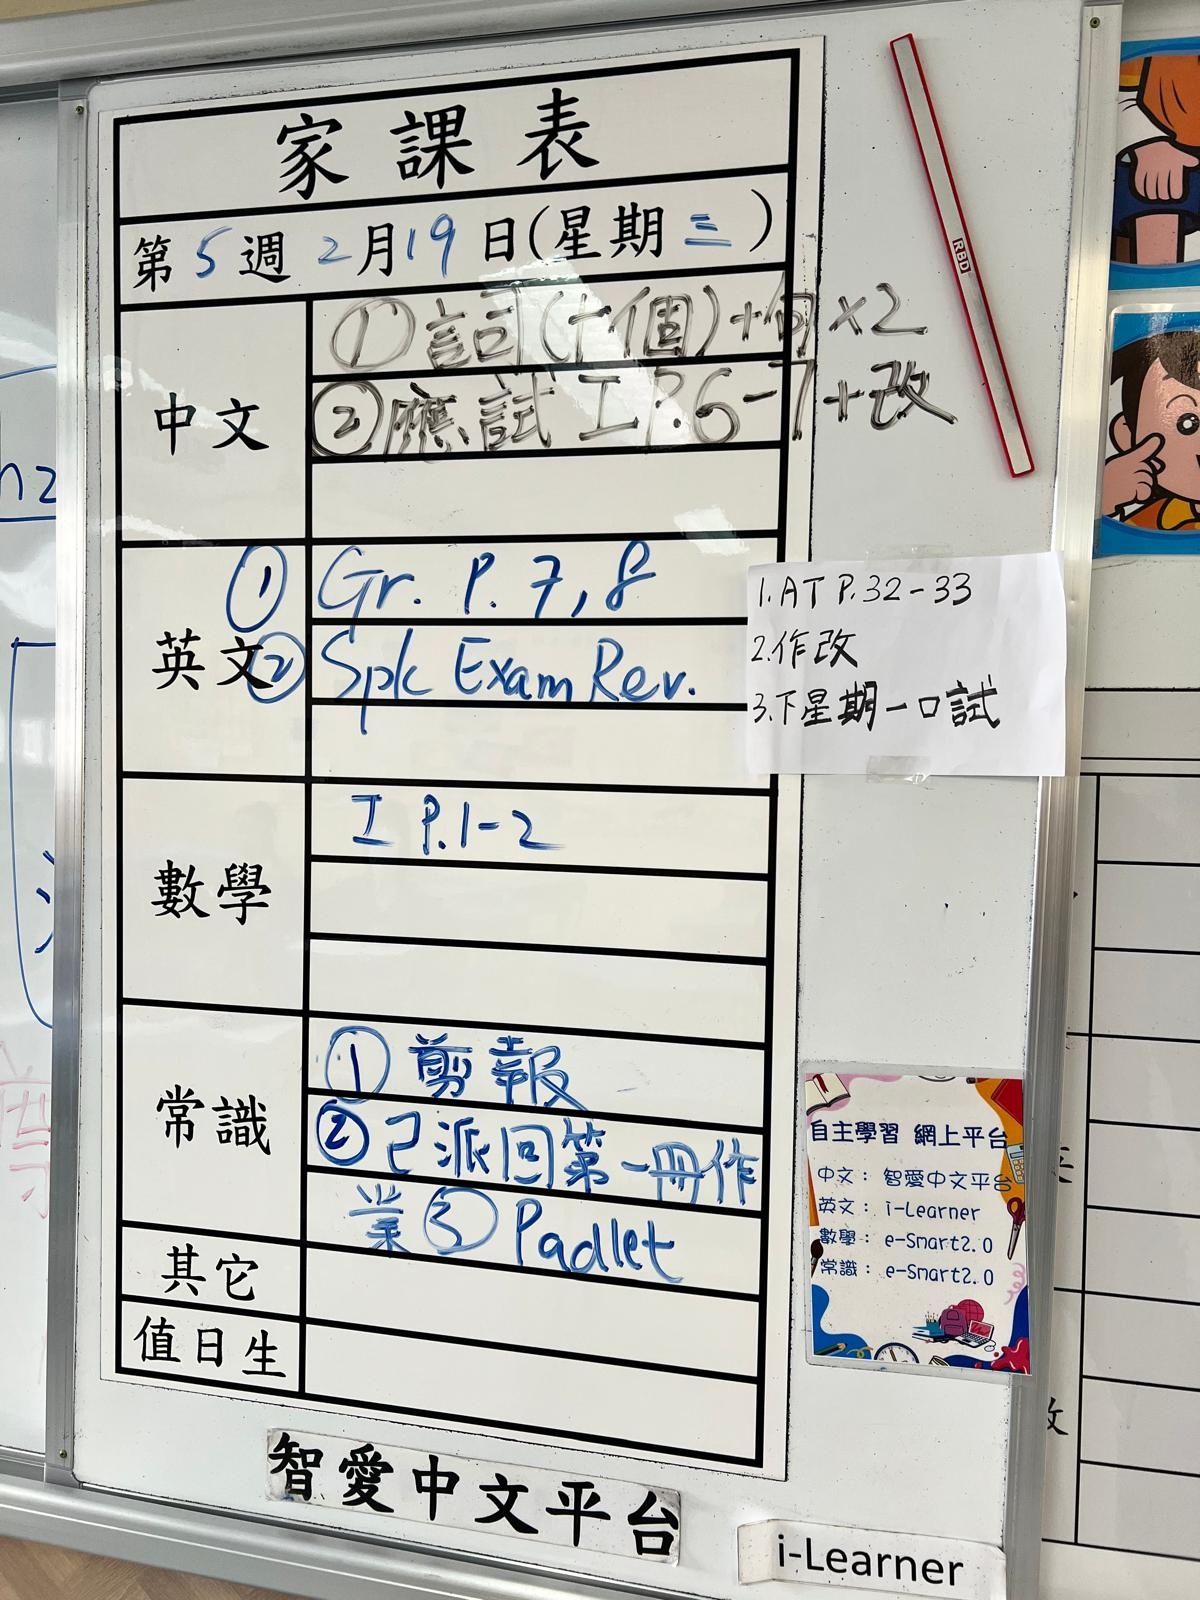 家課表
第5週2月19日(星期三)
中文
①詞(十個)+句×2
②應試工P.6-7+改
英文
①Gr. P. 7,8
②Spk Exam Rev.
1.AT P.32-33
2.作改
3.下星期一口試
數學
工 P.1-2
常識
①剪報
②已派回第一冊作
業③Padlet
其它
值日生
自主學習 網上平台
中文： 智愛中文平台
英文： i-Learner
數學： e-Smart2.0
常識： e-Smart2.0
智愛中文平台
i-Learner
RBD